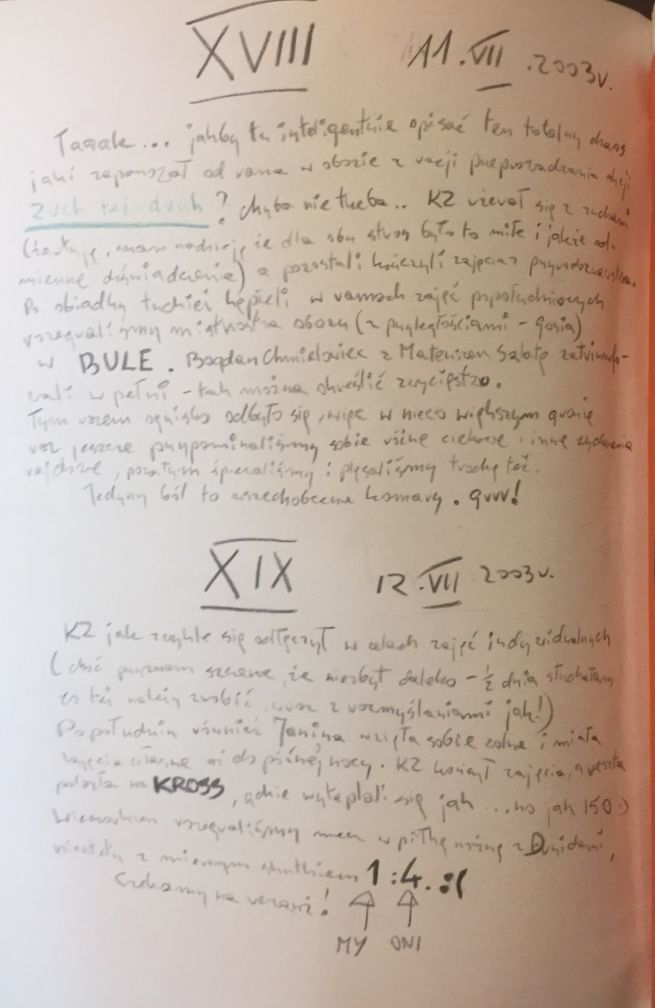 XVIII 11.VII.2003r.
Taaak... jakby tu inteligentnie opisać ten totalny chaos
jaki zapanował od rana w obozie z racji przeprowadzania akcji
Zuch też druh? chyba nie trzeba.. KZ się z zuchami
(żartuję, mam nadzieję, że dla obu stron było to miłe i jakże od-
mienne doświadczenie) a pozostali kończyli zajęcia z przyrodoznawstwa.
Po obiadku tudzież kąpieli w ramach zajęć popołudniowych
rozegraliśmy mistrzostwa obozu (z przyległościami - Gosia)
w BULE. Bogdan Chmielowiec z Mateuszem Sałatą zatriumfo-
wali w pełni - tak można określić zwycięstwo.
Tym razem ognisko odbyło się, więc w nieco większym gronie
raz jeszcze przypominaliśmy sobie różne ciekawe i inne zdarzenia
rajdowe, poza tym śpiewaliśmy i pląsaliśmy trochę też.
Jedyny ból to wszechobecne komary. grrr!
XIX 12.VII 2003r.
KZ jak zwykle się odłączył w celach zajęć indywidualnych
(choć przyznam szczerze, że niezbyt daleko - ½ dnia słuchałam
co też należy zrobić, wraz z rozmyślaniami jak!)
Popołudniu również Janina wzięła sobie wolne i miała
zajęcia własne aż do późnej nocy. KZ kończył zajęcia, a reszta
poszła na KROSS, gdzie wytaplali się jak ... no jak 150:)
Wieczorkiem rozegraliśmy mecz w piłkę nożną z Druidami,
niestety z miernym skutkiem 1:4. :(
Czekamy na rewanż!
MY ONI